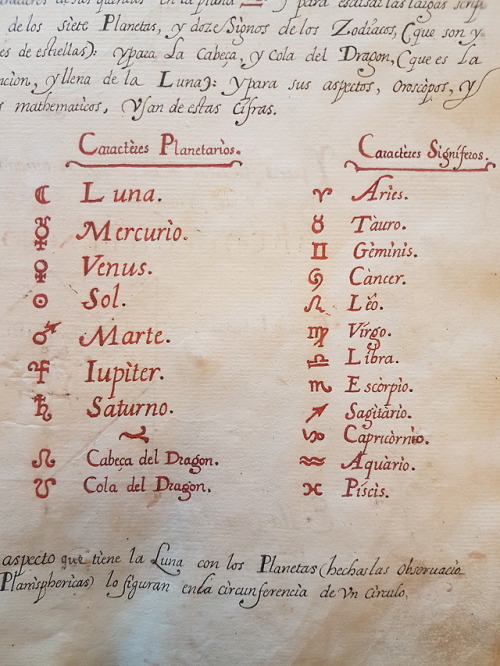 de los siete Planetas, y doze Signos de los Zodiacos, (que son y
es de estrellas): ypara La Cabeça, y Cola del Dragon, (que es la
ncion, y llena de la Luna): ypara sus aspectos, Oroscòpos, y
s mathematicos, Vsan de estas Cifras.
Caractères Planetarios.
☾ Luna.
☿ Mercurìo.
♀ Venus.
☉ Sol.
♂ Marte.
♃ Iupìter.
♄ Saturno.
☊ Cabeça del Dragon.
☋ Cola del Dragon.
Caractères Signíferos.
♈ Aries.
♉ Tàuro.
♊ Gèminis.
♋ Càncer.
♌ Lêo.
♍ Vírgo.
♎ Líbra.
♏ Escòrpìo.
♐ Sagìtàrio.
♑ Caprìcòrnìo.
♒ Aquàrìo.
♓ Píscìs.
aspecto que tìene la Luna con los Planetas (hechas las obseruacìo
Planìsphericas) lo figuran enla cìrcunferencìa de vn círculo,